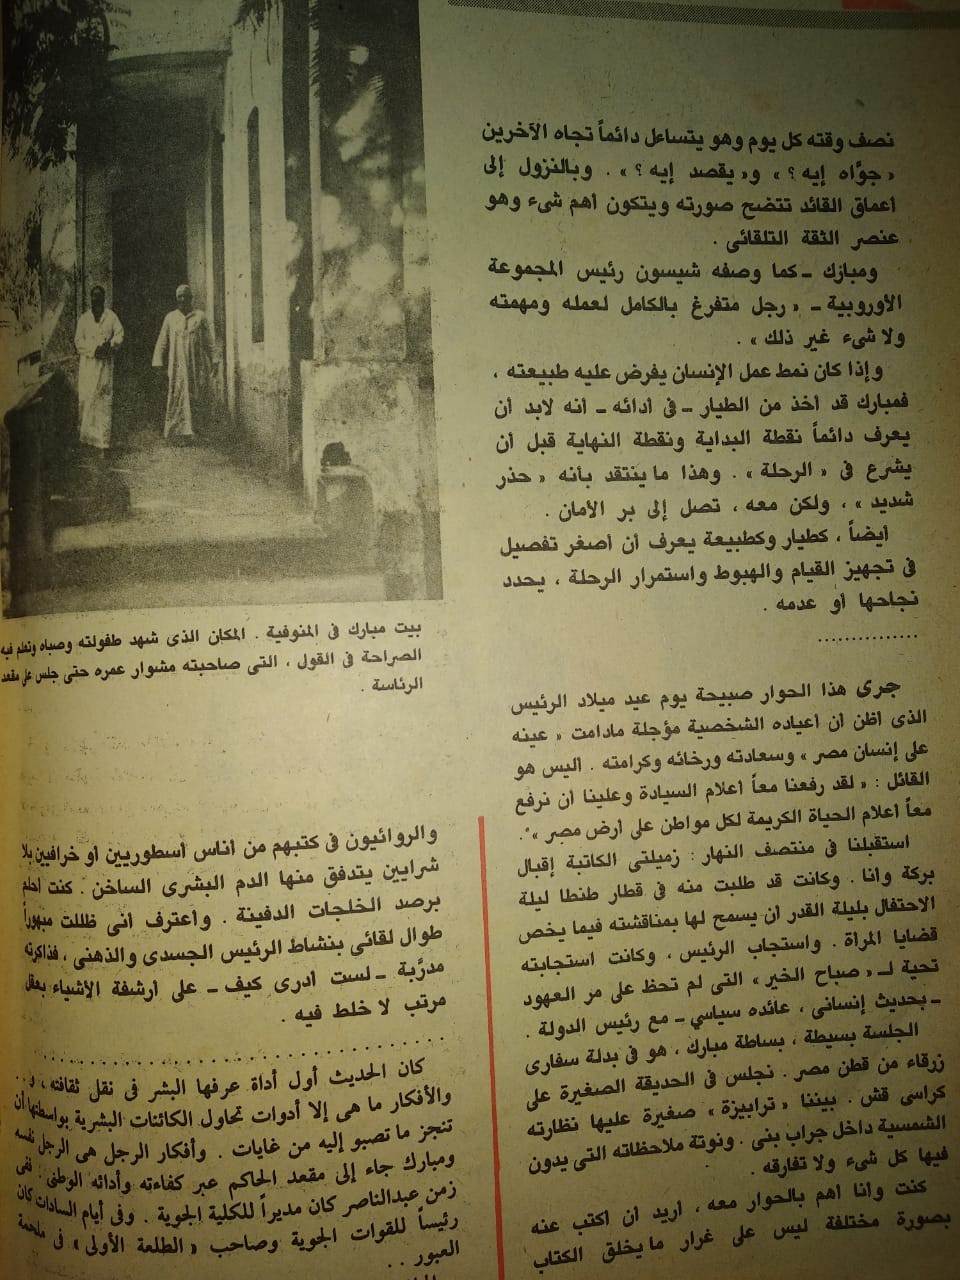 نصف وقته كل يوم وهو يتساءل دائماً تجاه الآخرين
« جوَّاه إيه ؟ » و« يقصد إيه ؟ » . وبالنزول إلى
أعماق القائد تتضح صورته ويتكون أهم شىء وهو
عنصر الثقة التلقائى .
ومبارك ــ كما وصفه شيسون رئيس المجموعة
الأوروبية ــ « رجل متفرغ بالكامل لعمله ومهمته
ولا شىء غير ذلك » .
وإذا كان نمط عمل الإنسان يفرض عليه طبيعته ،
فمبارك قد أخذ من الطيار ــ فى أدائه ــ أنه لابد أن
يعرف دائماً نقطة البداية ونقطة النهاية قبل أن
يشرع فى « الرحلة » . وهذا ما ينتقد بأنه « حذر
شديد » ، ولكن معه ، تصل إلى بر الأمان .
أيضاً ، كطيار وكطبيعة يعرف أن أصغر تفصيل
فى تجهيز القيام والهبوط واستمرار الرحلة ، يحدد
نجاحها أو عدمه .
...............
جرى هذا الحوار صبيحة يوم عيد ميلاد الرئيس
الذى أظن أن أعياده الشخصية مؤجلة مادامت « عينه
على إنسان مصر » وسعادته ورخائه وكرامته . أليس هو
القائل : « لقد رفعنا معاً أعلام السيادة وعلينا أن نرفع
معاً أعلام الحياة الكريمة لكل مواطن على أرض مصر » .
استقبلنا فى منتصف النهار : زميلتى الكاتبة إقبال
بركة وأنا . وكانت قد طلبت منه فى قطار طنطا ليلة
الاحتفال بليلة القدر أن يسمح لها بمناقشته فيما يخص
قضايا المرأة . واستجاب الرئيس ، وكانت استجابته
تحية لـ « صباح الخير » التى لم تحظ على مر العهود
ــ بحديث إنسانى ، عائده سياسي ــ مع رئيس الدولة .
الجلسة بسيطة ، بساطة مبارك ، هو فى بدلة سفارى
زرقاء من قطن مصر . نجلس فى الحديقة الصغيرة على
كراسى قش . بيننا « ترابيزة » صغيرة عليها نظارته
الشمسية داخل جراب بنى . ونوتة ملاحظاته التى يدون
فيها كل شىء ولا تفارقه .
كنت وأنا أهم بالحوار معه ، أريد أن أكتب عنه
بصورة مختلفة ليس على غرار ما يخلق الكتاب
بيت مبارك فى المنوفية . المكان الذى شهد طفولته وصباه وتعلم فيه
الصراحة فى القول ، التى صاحبته مشوار عمره حتى جلس على مقعد
الرئاسة .
والروائيون فى كتبهم من أناس أسطوريين أو خرافيين بلا
شرايين يتدفق منها الدم البشرى الساخن . كنت أحلم
برصد الخلجات الدفينة . وأعترف أنى ظللت مبهوراً
طوال لقائى بنشاط الرئيس الجسدى والذهنى ، فذاكرته
مدرَّبة ــ لست أدرى كيف ــ على أرشفة الأشياء بعقل
مرتب لا خلط فيه .
......................................
كان الحديث أول أداة عرفها البشر فى نقل ثقافته ، و..
والأفكار ما هى إلا أدوات تحاول الكائنات البشرية بواسطتها أن
تنجز ما تصبو إليه من غايات . وأفكار الرجل هى الرجل نفسه
ومبارك جاء إلى مقعد الحاكم عبر كفاءته وأدائه الوطنى . ففى
زمن عبدالناصر كان مديراً للكلية الجوية . وفى أيام السادات كان
رئيساً للقوات الجوية وصاحب « الطلعة الأولى » فى ملحمة
العبور . .